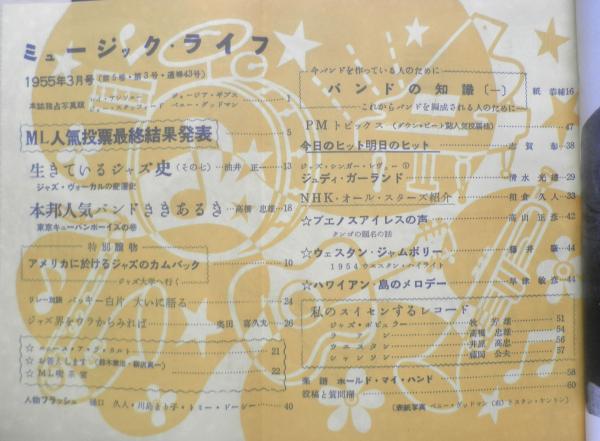 ミュージック・ライフ
1955年3月号(第5号・第3号・通巻43号)
本誌独占写真頁
ジョー・スタッフォード ベニー・グッドマン 1
ML人氣投票最終結果発表 5
生きているジャズ史(その七) 油井正一 13
ジャズ・ヴォーカルの変遷史
本邦人気バンドききあるき 高橋忠雄 18
東京キューバンボーイズの巻
特別読物
アメリカに於けるジャズのカムバック 10
ジャズ大学へ行く
リレー対談 バッキー白片 大いに語る 24
ジャズ界をウラからみれば 奥田喜久夫 26
21
☆お答えします
☆ML喫茶室 22
人物フラッシュ 樋口久人・川島まり子・トミー・ドーシー 40
今バンドを作っている人のために
バンドの知識(一) 紙恭輔 16
これからバンドを編成される人のために
PMトピックス(ダウン・ビート誌人気投票結) 47
今日のヒット明日のヒット 志賀彰 38
ジャズ・シンガー・レヴュー①
ジュディ・ガーランド 清水光雄 29
NHK・オール・スターズ紹介 相倉久人 33
☆ブエノスアイレスの声 高山正彦 42
タンゴの題名の話
☆ウェスタン・ジャムボリー 44
1954ウエスタン・ハイライト
☆ハワイアン・島のメロデー 早津敏彦 44
私のスイセンするレコード
ジャズ・ポピュラー 牧芳雄 51
タンゴ 高橋忠雄 54
ウエスタン 井原高忠 56
シャンソン 蘆原公夫 57
楽譜 ホールド・マイ・ハンド 58
投稿と質問欄 60
(表紙写真 ベニー・グッドマン(右)とスタン・ケントン)